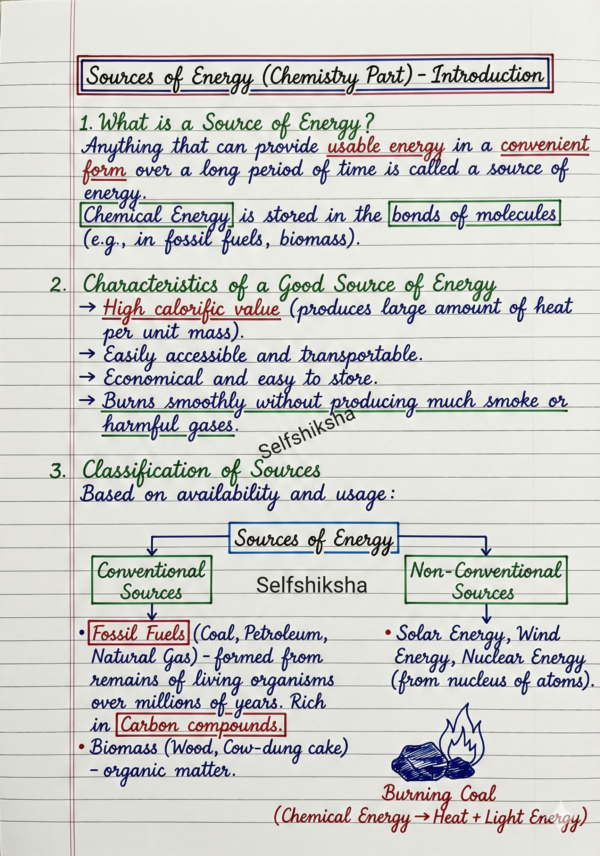 Sources of Energy (Chemistry Part) - Introduction
1. What is a Source of Energy?
Anything that can provide usable energy in a convenient
form over a long period of time is called a source of
energy.
Chemical Energy is stored in the bonds of molecules
(e.g., in fossil fuels, biomass).
2. Characteristics of a Good Source of Energy
→ High calorific value (produces large amount of heat
per unit mass).
→ Easily accessible and transportable.
→ Economical and easy to store.
→ Burns smoothly without producing much smoke or
harmful gases.
Selfshiksha
3. Classification of Sources
Based on availability and usage:
Sources of Energy
Conventional
Sources
Selfshiksha
Non-Conventional
Sources
• Fossil Fuels (Coal, Petroleum,
Natural Gas) - formed from
remains of living organisms
over millions of years. Rich
in Carbon compounds.
• Biomass (Wood, Cow-dung cake)
- organic matter.
• Solar Energy, Wind
Energy, Nuclear Energy
(from nucleus of atoms).
Burning Coal
(Chemical Energy → Heat + Light Energy)